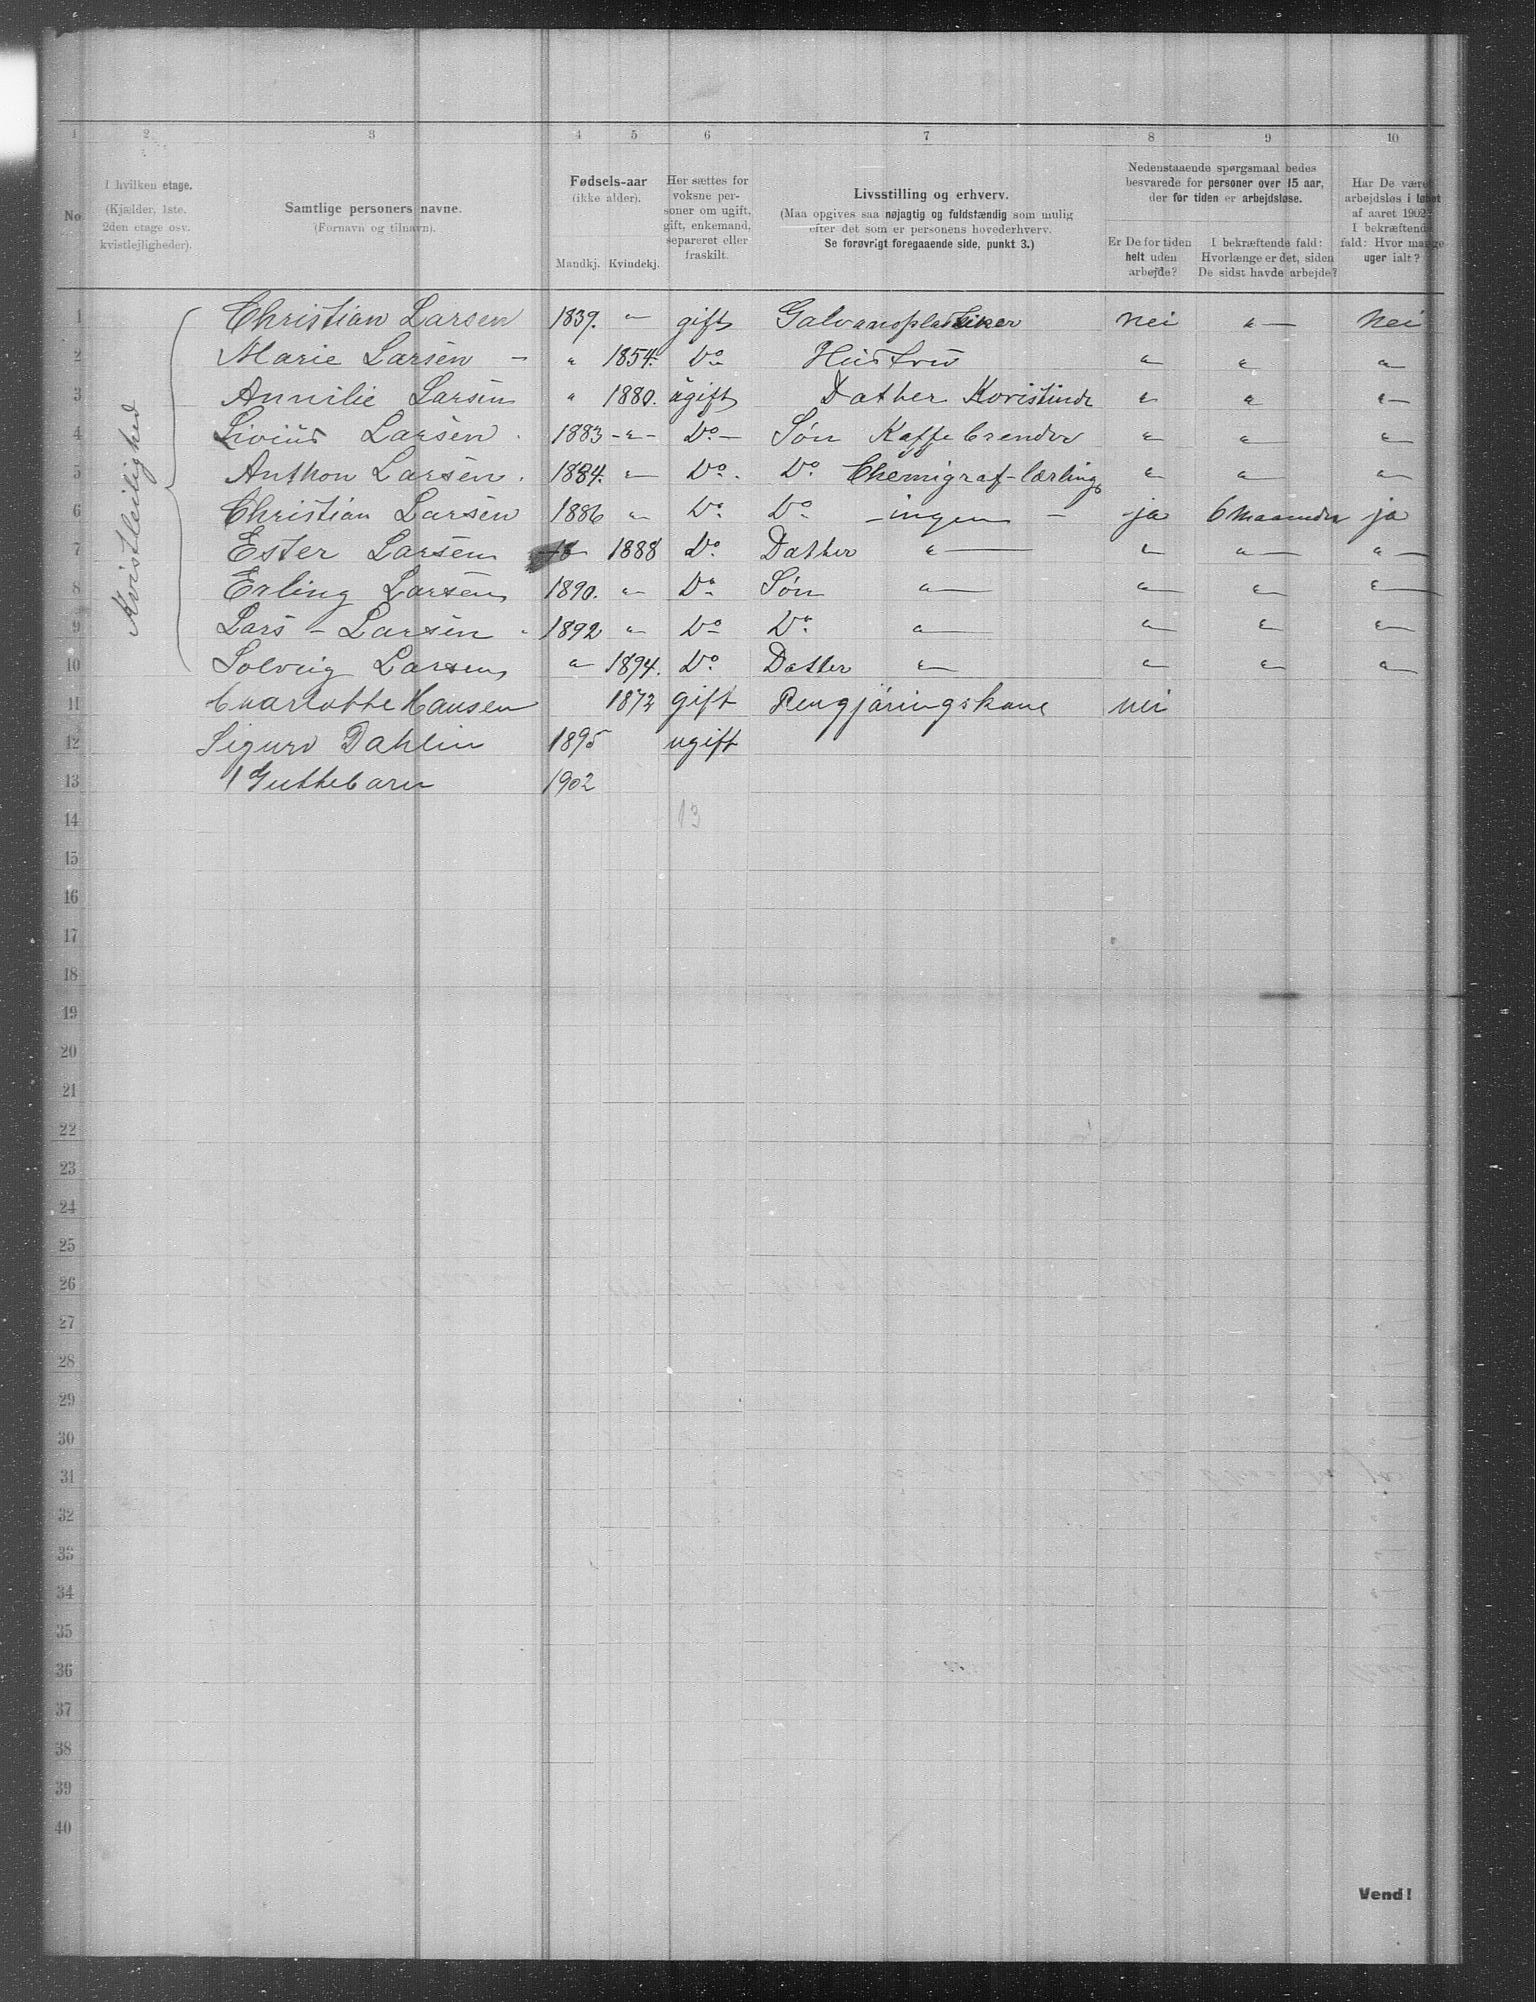 1 2 3 4 5 6 7 8 9 10
No
I hvilken etage.
(Kjælder, 1ste.
2den etage osv.
kvistlejligheder).
Samtlige personers navne.
(Fornavn og tilnavn).
Fødsels-aar
(ikke alder).
Mandkj. Kvindekj.
Her sættes for
voksne per-
soner om ugift,
gift, enkemand,
separeret eller
fraskilt.
Livsstilling og erhverv.
(Maa opgives saa nøjagtig og fuldstændig som mulig
efter det som er personens hovederhverv.
Se forøvrigt foregaaende side, punkt 3.)
Nedenstaaende spørgsmaal bedes
besvarede for personer over 15 aar,
der for tiden er arbejdsløse.
Er De for tiden
helt uden
arbejde?
I bekræftende fald:
Hvorlænge er det, siden
De sidst havde arbejde?
Har De været
arbejdsløs i løbet
af aaret 1902?
I bekræftende
fald: Hvor mange
uger ialt?
Kvistleilighed
1 Christian Larsen 1839. " gift Galvanoplastiker nei " nei
2 Marie Larsen - " 1854. Do Hustru " " "
3 Annilie Larsen " 1880. ugift Dather Koristinde " " "
4 Livius Larsen. 1883 - " - Do - Søn Kaffebrender " " "
5 Anthon Larsen. 1884. " Do. Do Chemigraf-lærling " " "
6 Christian Larsen 1886 " Do Do - ingen - ja 6 maaneder ja
7 Ester Larsen 1888 Do Dather " " " "
8 Erling Larsen 1890. " Do Søn " " " "
9 Lars - Larsen 1892 " Do Do " " " "
10 Solveig Larsen " 1894. Do Datter " " " "
11 Charlotte Hansen 1872 gift Rengjøringskone nei
12 Sigurd Dahlin 1895 ugift
13 1 Guttebarn 1902
14 13
15
16
17
18
19
20
21
22
23
24
25
26
27
28
29
30
31
32
33
34
35
36
37
38
39
40
Vend!